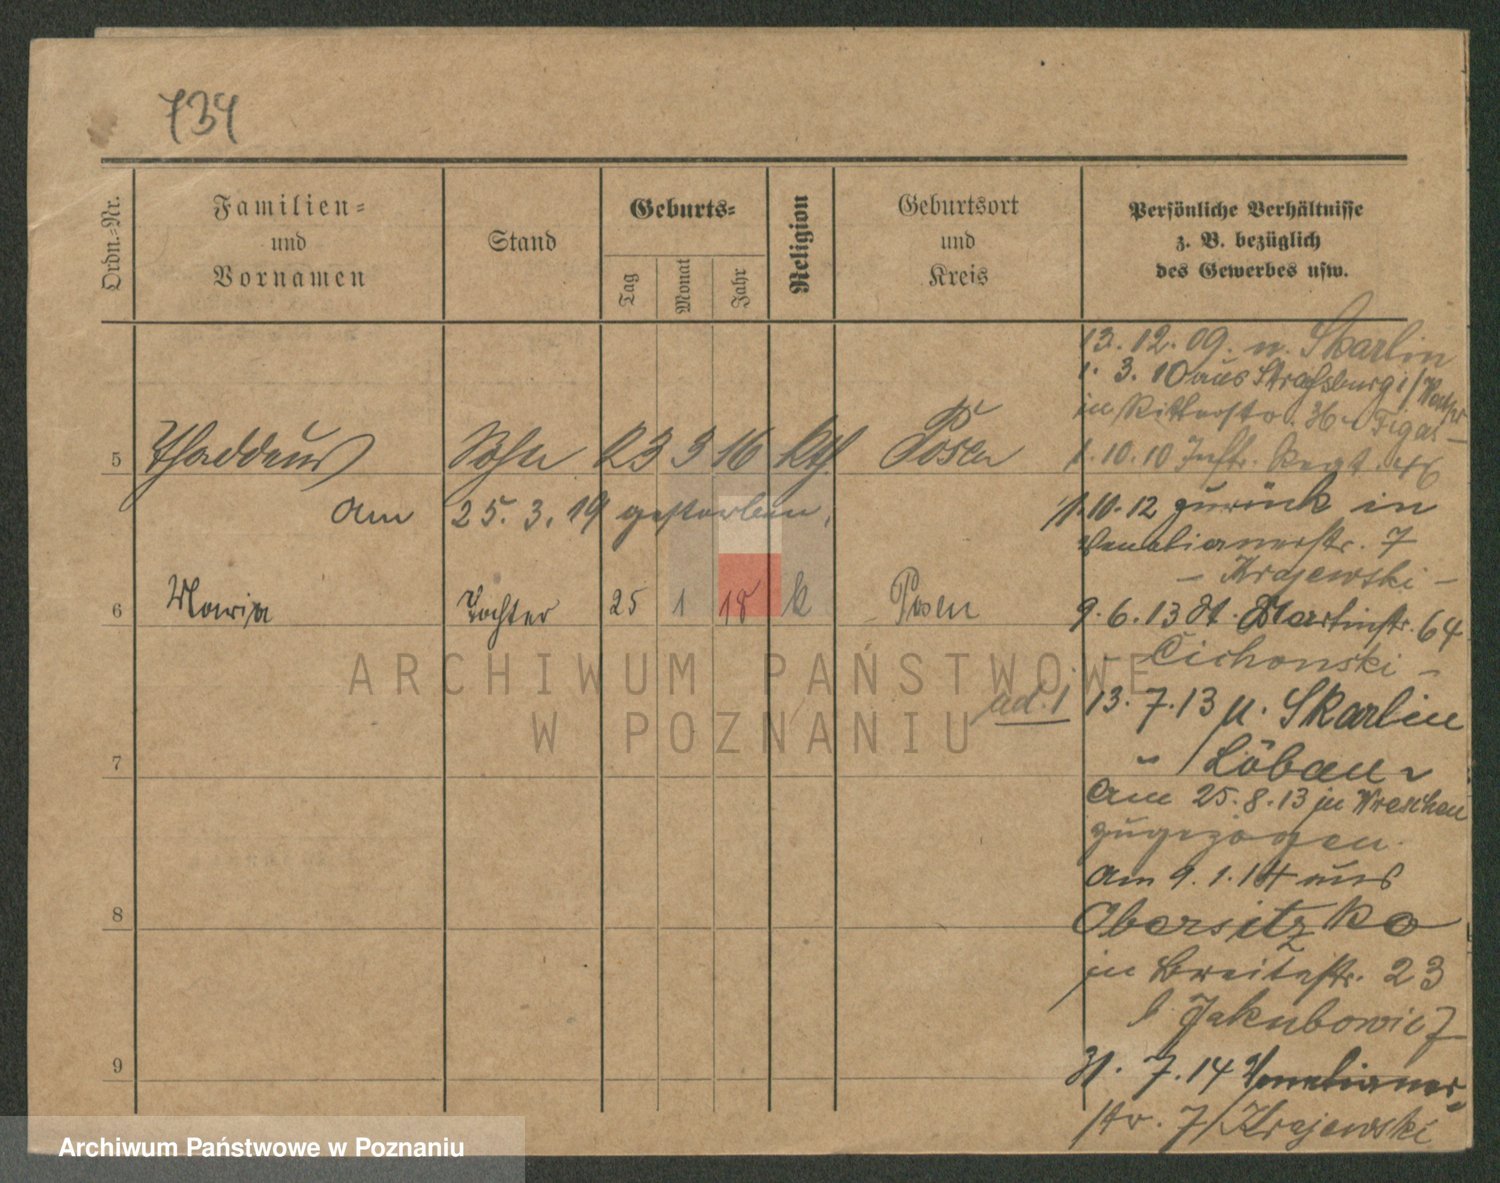 734
Ordn.=Nr.
Familien=
und
Vornamen
Stand
Geburts=
Tag
Monat
Jahr
Religion
Geburtsort
und
Kreis
Persönliche Verhältnisse
z. B. bezüglich
des Gewerbes usw.
5 Thaddeus Sohn 23 3 16 kth Posen
am 25. 3. 19 gestorben.
6 Maria Tochter 25 1 18 k Posen
7
8
9
13. 12. 09. n. Skarlin
1. 3. 10 aus Strassburg i/
in Ritterstr. 36
1. 10. 10 Inftr. Regt. 46
1.10.12 zurück in
Venetianerstr. 7
- Krajewski -
9. 6. 13 St. Martinstr. 64
- Cichonski -
ad. 1 13. 7. 13 n. Skarlin
Löbau
am 25. 8. 13 in Wreschen
zugezogen.
am 9. 1. 14 aus
Obersitzko
in Breitestr. 23
b Jakubowicz
31. 7. 14 Venetianer-
str. 7/ Krajewski
ARCHIWUM PAŃSTWOWE
W POZNANIU
Archiwum Państwowe w Poznaniu